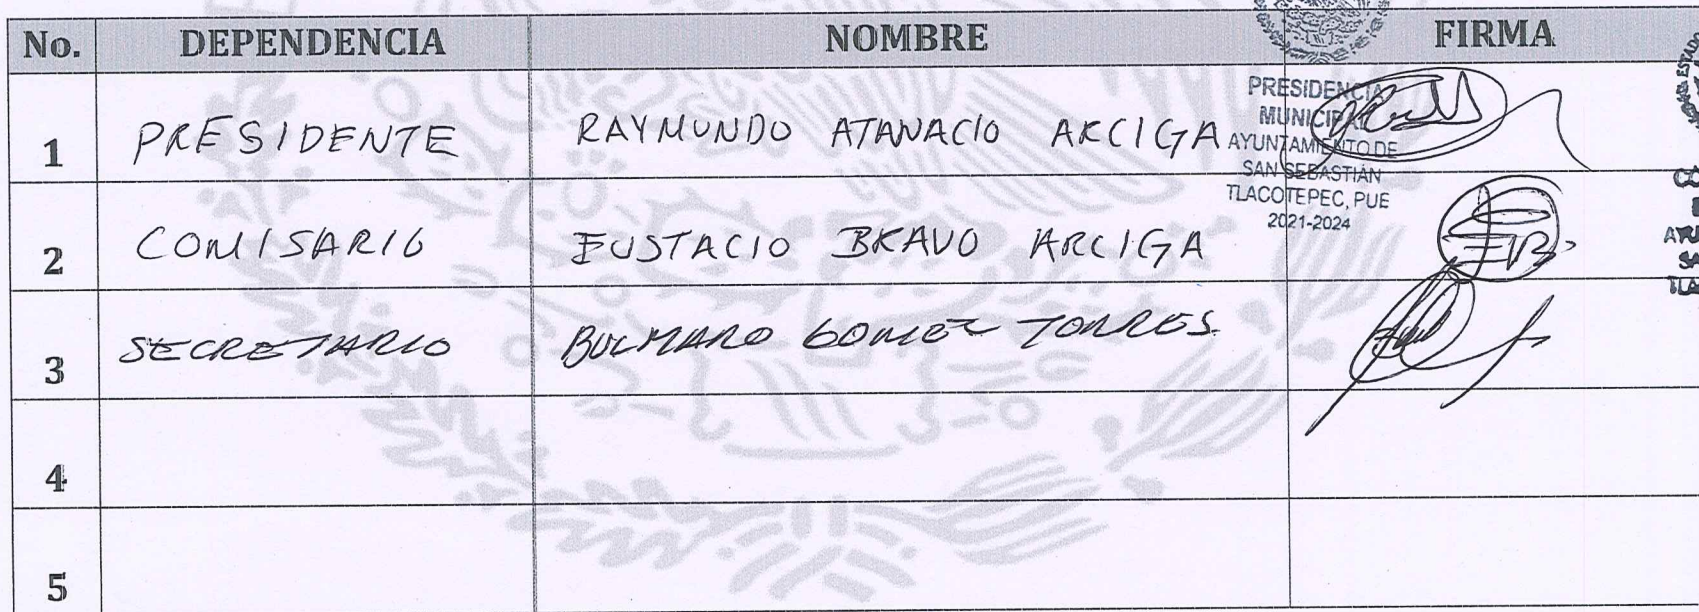 No. DEPENDENCIA NOMBRE FIRMA
1 PRESIDENTE RAYMUNDO ATANACIO ARCIGA
PRESIDENCIA
MUNICIPAL
AYUNTAMIENTO DE
SAN SEBASTIÁN
TLACOTEPEC, PUE
2021-2024
2 COMISARIO EUSTACIO BRAVO ARCIGA
3 SECRETARIO BULMARO GOMEZ TORRES
4
5